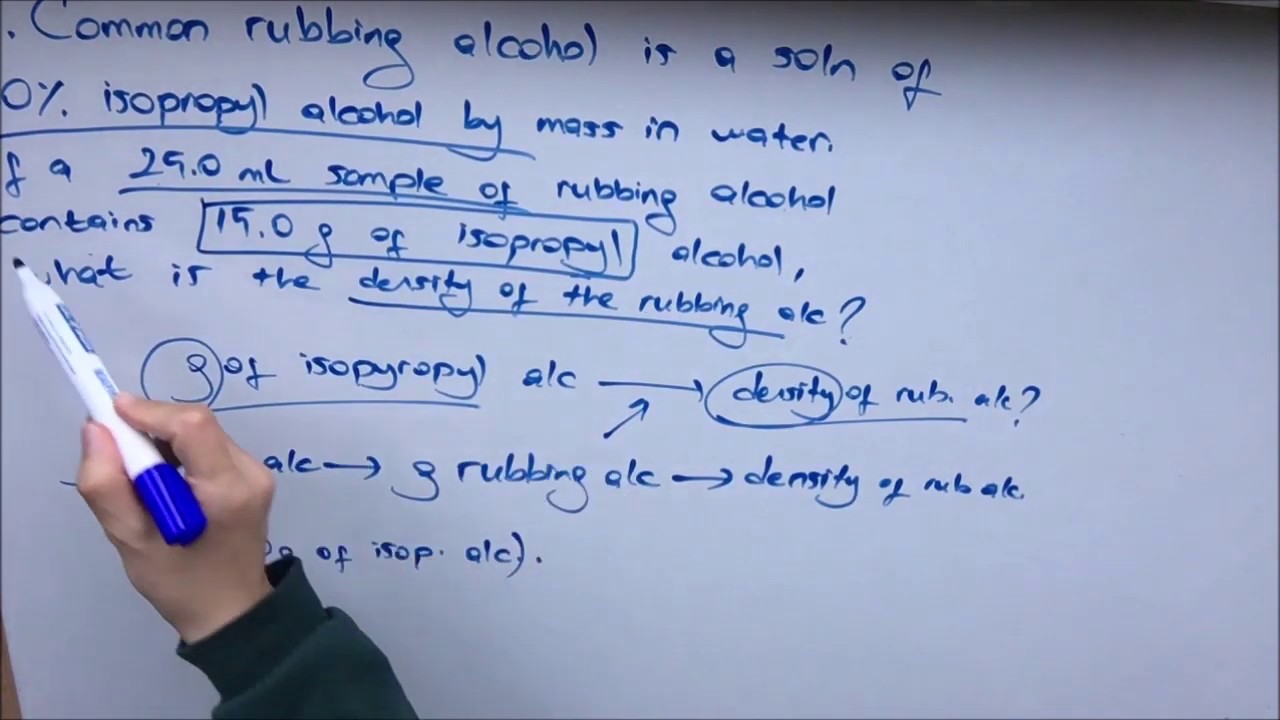 . Common rubbing alcohol is a soln of
0% isopropyl alcohol by mass in water.
f a 25.0 mL sample of rubbing alcohol
contains 15.0 g of isopropyl alcohol,
hat is the density of the rubbing alc?
g of isopyropyl alc → density of rub. alc?
alc → g rubbing alc → density of rub alc.
g of isop. alc).